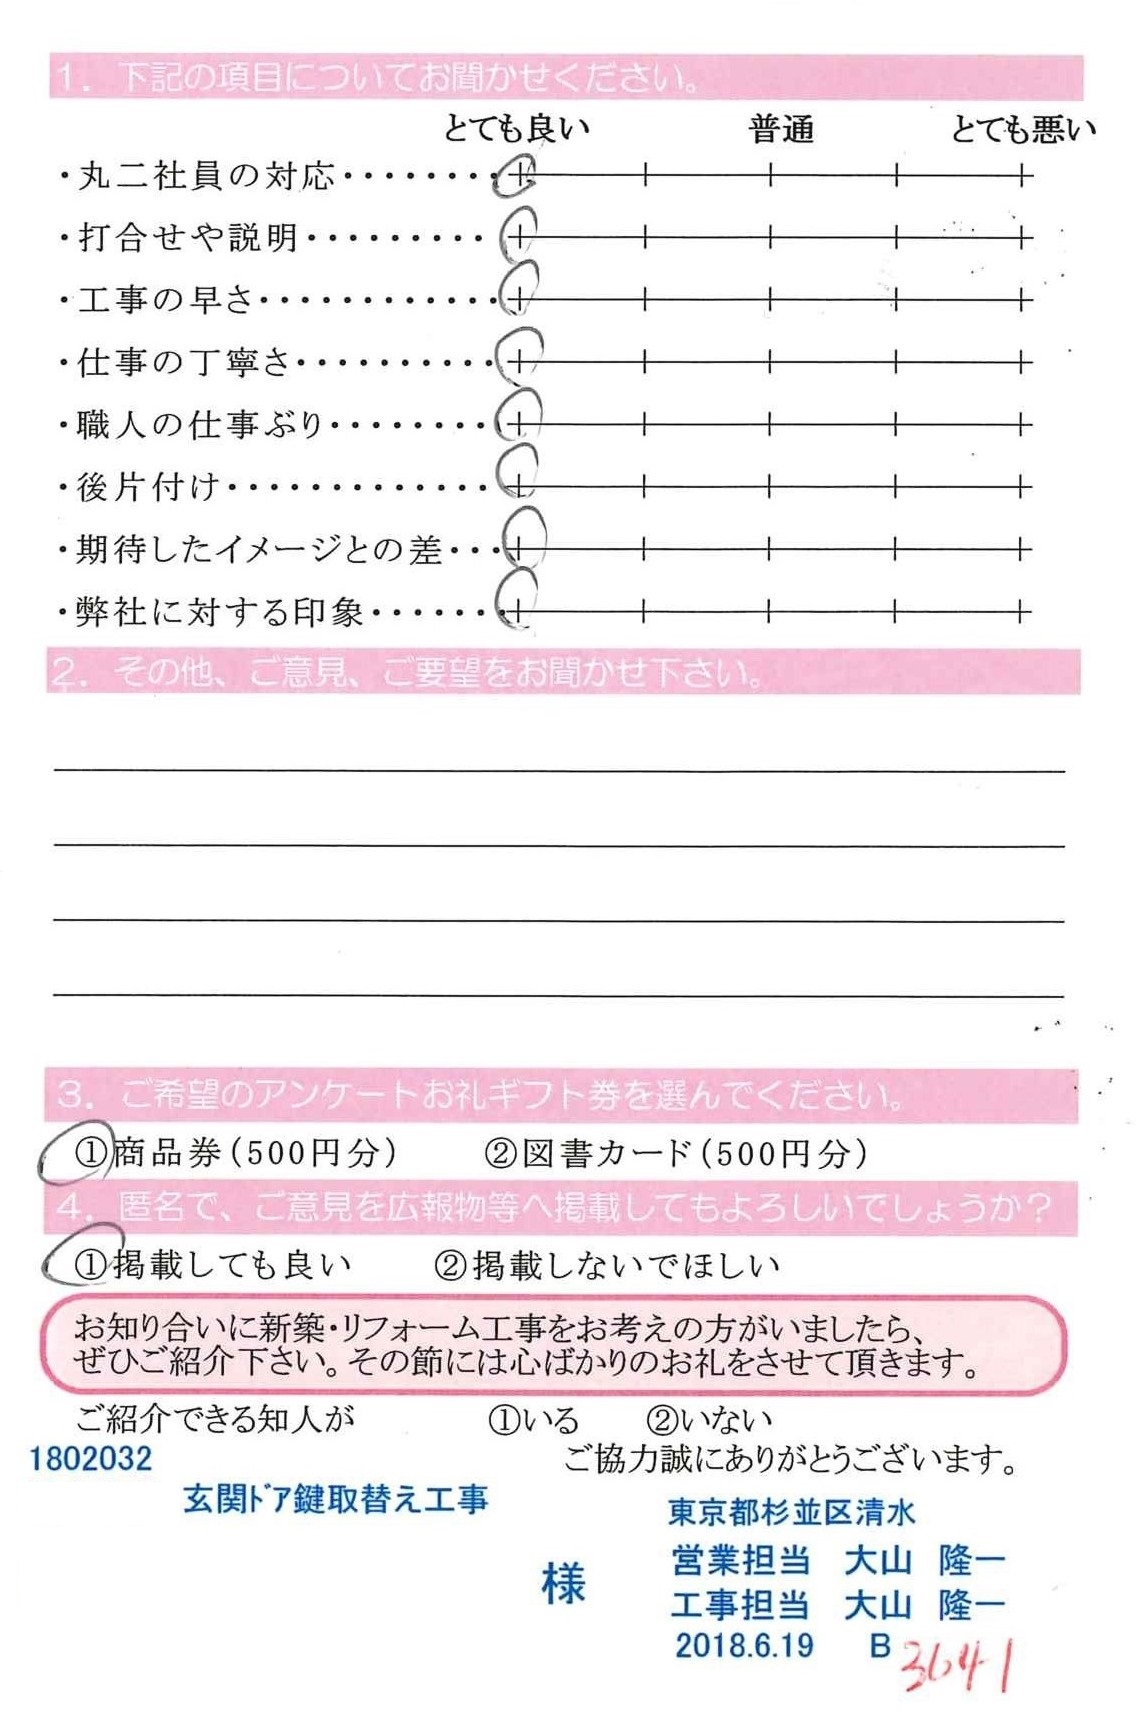 1. 下記の項目についてお聞かせください。
とても良い 普通 とても悪い
・丸二社員の対応・・・・・・・・
・打合せや説明・・・・・・・・・
・工事の早さ・・・・・・・・・・・・
・仕事の丁寧さ・・・・・・・・・・
・職人の仕事ぶり・・・・・・・・
・後片付け・・・・・・・・・・・・・
・期待したイメージとの差・・・
・弊社に対する印象・・・・・・・
2. その他、ご意見、ご要望をお聞かせ下さい。
3. ご希望のアンケートお礼ギフト券を選んでください。
①商品券(500円分) ②図書カード(500円分)
4. 匿名で、ご意見を広報物等へ掲載してもよろしいでしょうか?
①掲載しても良い ②掲載しないでほしい
お知り合いに新築・リフォーム工事をお考えの方がいましたら、
ぜひご紹介下さい。その節には心ばかりのお礼をさせて頂きます。
ご紹介できる知人が ①いる ②いない
1802032 ご協力誠にありがとうございます。
玄関ﾄﾞｱ鍵取替え工事 東京都杉並区清水
様 営業担当 大山 隆一
工事担当 大山 隆一
2018.6.19 B 3641